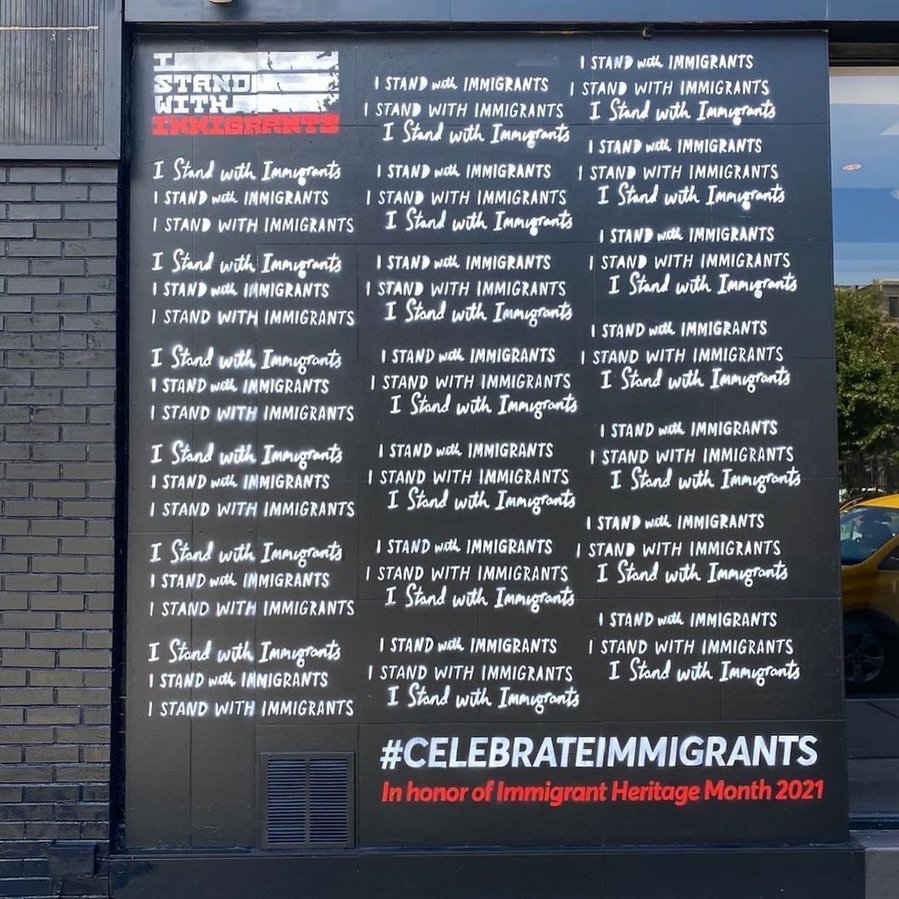 I
STAND
WITH
IMMIGRANTS
I Stand with Immigrants
I STAND with IMMIGRANTS
I STAND WITH IMMIGRANTS
I Stand with Immigrants
I STAND with IMMIGRANTS
I STAND WITH IMMIGRANTS
I Stand with Immigrants
I STAND with IMMIGRANTS
I STAND WITH IMMIGRANTS
I Stand with Immigrants
I STAND with IMMIGRANTS
I STAND WITH IMMIGRANTS
I Stand with Immigrants
I STAND with IMMIGRANTS
I STAND WITH IMMIGRANTS
I Stand with Immigrants
I STAND with IMMIGRANTS
I STAND WITH IMMIGRANTS
I STAND with IMMIGRANTS
I STAND WITH IMMIGRANTS
I Stand with Immigrants
I STAND with IMMIGRANTS
I STAND WITH IMMIGRANTS
I Stand with Immigrants
I STAND with IMMIGRANTS
I STAND WITH IMMIGRANTS
I Stand with Immigrants
I STAND with IMMIGRANTS
I STAND WITH IMMIGRANTS
I Stand with Immigrants
I STAND with IMMIGRANTS
I STAND WITH IMMIGRANTS
I Stand with Immigrants
I STAND with IMMIGRANTS
I STAND WITH IMMIGRANTS
I Stand with Immigrants
I STAND with IMMIGRANTS
I STAND WITH IMMIGRANTS
I Stand with Immigrants
I STAND with IMMIGRANTS
I STAND WITH IMMIGRANTS
I Stand with Immigrants
I STAND with IMMIGRANTS
I STAND WITH IMMIGRANTS
I Stand with Immigrants
I STAND with IMMIGRANTS
I STAND WITH IMMIGRANTS
I Stand with Immigrants
I STAND with IMMIGRANTS
I STAND WITH IMMIGRANTS
I Stand with Immigrants
I STAND with IMMIGRANTS
I STAND WITH IMMIGRANTS
I Stand with Immigrants
I STAND with IMMIGRANTS
I STAND WITH IMMIGRANTS
I Stand with Immigrants
I STAND with IMMIGRANTS
I STAND WITH IMMIGRANTS
I Stand with Immigrants
#CELEBRATEIMMIGRANTS
In honor of Immigrant Heritage Month 2021